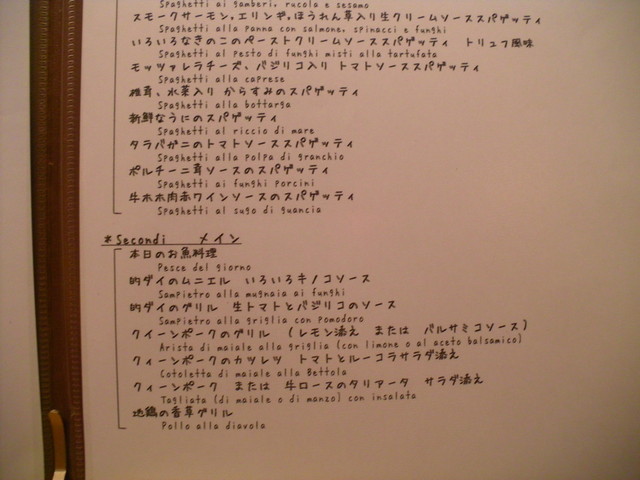 Spaghetti ai gamberi, rucola e sesamo
スモークサーモン、エリンギ、ほうれん草入り生クリームソーススパゲッティ
Spaghetti alla panna con salmone, spinacci e funghi
いろいろなきのこのペーストクリームソーススパゲッティ トリュフ風味
Spaghetti al pesto di funghi misti alla tartufata
モッツァレラチーズ、バジリコ入り トマトソーススパゲッティ
Spaghetti alla caprese
椎茸、水菜入り からすみのスパゲッティ
Spaghetti alla bottarga
新鮮なうにのスパゲッティ
Spaghetti al riccio di mare
タラバガニのトマトソーススパゲッティ
Spaghetti alla polpa di granchio
ポルチーニ茸ソースのスパゲッティ
Spaghetti ai funghi porcini
牛ホホ肉赤ワインソースのスパゲッティ
Spaghetti al sugo di guancia
*Secondi メイン
本日のお魚料理
Pesce del giorno
的ダイのムニエル いろいろキノコソース
Sampietro alla mugnaia ai funghi
的ダイのグリル 生トマトとバジリコのソース
Sampietro alla griglia con pomodoro
クイーンポークのグリル (レモン添え または バルサミコソース)
Arista di maiale alla griglia (con limone o al aceto balsamico)
クィーンポークのカツレツ トマトとルーコラサラダ添え
Cotoletta di maiale alla Bettola
クィーンポーク または 牛ロースのタリアータ サラダ添え
Tagliata (di maiale o di manzo) con insalata
地鶏の香草グリル
Pollo alla diavola